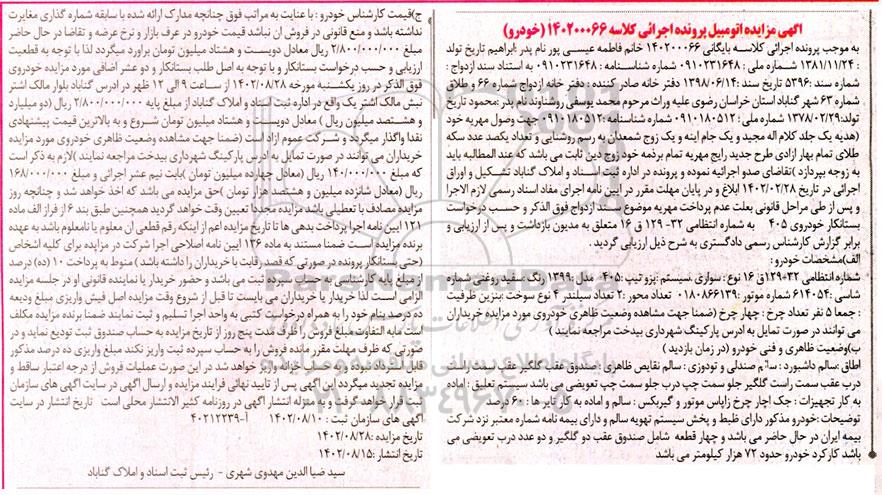 آگهی مزایده اتومبیل پرونده اجرائی کلاسه ۱۴۰۲۰۰۰۶۶ (خودرو)
به موجب پرونده اجرائی کلاسه بایگانی ۱۴۰۲۰۰۰۶۶ خانم فاطمه عیسی پور نام پدر :ابراهیم تاریخ تولد
: ۱۳۸۱/۱۱/۲۴ شماره ملی : ۰۹۱۰۲۳۱۶۴۸ شماره شناسنامه : ۰۹۱۰۲۳۱۶۴۸ به استناد سند ازدواج :
شماره سند :۵۳۹۶ تاریخ سند :۱۳۹۸/۰۶/۱۴ دفتر خانه صادر کننده : دفتر خانه ازدواج شماره ۶۶ و طلاق
شماره ۶۳ شهر گناباد استان خراسان رضوی علیه وراث مرحوم محمد یوسفی روشناوند نام پدر :محمود تاریخ
تولد:۱۳۷۸/۰۲/۲۹ شماره ملی : ۰۹۱۰۱۸۰۵۱۲ شماره شناسنامه :۰۹۱۰۱۸۰۵۱۲ جهت وصول مهریه خود
(هدیه یک جلد کلام اله مجید و یک جام اینه و یک زوج شمعدان به رسم روشنایی و تعداد یکصد عدد سکه
طلای تمام بهار ازادی طرح جدید رایج مهریه تمام برذمه خود زوج دین ثابت می باشد که عند المطالبه باید
به زوجه بپردازد )تقاضای صدور اجرائیه نموده و پرونده در اداره ثبت اسناد و املاک گناباد تشکیل و اوراق
اجرائی در تاریخ ۱۴۰۲/۰۲/۲۸ ابلاغ و در پایان مهلت مقرر در ایین نامه اجرای مفاد اسناد رسمی لازم الاجرا
و پس از طی مراحل قانونی بعلت عدم پرداخت مهریه موضوع سند ازدواج فوق الذکر و حسب درخواست
بستانکار خودروی ۴۰۵ به شماره انتظامی ۳۲- ۱۲۹ ق ۱۶ متعلق به مدیون بازداشت و پس از ارزیابی و
برابر گزارش کارشناس رسمی دادگستری به شرح ذیل ارزیابی گردید .
الف)مشخصات خودرو :
شماره انتظامی ۳۲-۱۲۹ق ۱۶ نوع : سواری سیستم :پژو تیپ :۴۰۵ مدل :۱۳۹۹ رنگ سفید روغنی شماره
شاسی : ۶۱۴۰۵۴ شماره موتور :۰۱۸۰۸۶۶۱۳۹ تعداد محور :۲ تعداد سیلندر ۴ نوع سوخت :بنزین ظرفیت
: جمعا ۵ نفر تعداد چرخ : چهار چرخ (ضمنا جهت مشاهده وضعیت ظاهری خودروی مورد مزایده خریداران
می توانند در صورت تمایل به ادرس پارکینگ شهرداری بیدخت مراجعه نمایند )
ب)وضعیت ظاهری و فنی خودرو (در زمان بازدید )
اطاق: سالم داشبورد : سالم صندلی و تودوزی : سالم نقایص ظاهری : صندوق عقب گلگیر عقب سمت راست
درب عقب سمت راست گلگیر جلو سمت چپ درب جلو سمت چپ تعویضی می باشد سیستم تعلیق : اماده
به کار تجهیزات : جک اچار چرخ زاپاس موتور و گیربکس : سالم و اماده به کار تایر ها : ۶۰ درصد
توضیحات: خودرو مذکور دارای ظبط و پخش سیستم تهویه سالم و دارای بیمه نامه شماره معتبر نزد شرکت
بیمه ایران در حال حاضر می باشد و چهار قطعه شامل صندوق عقب دو گلگیر و دو عدد درب تعویضی می
باشد کارکرد خودرو حدود ۷۲ هزار کیلومتر می باشد
ج)قیمت کارشناس خودرو : با عنایت به مراتب فوق چنانچه مدارک ارائه شده با سابقه شماره گذاری مغایرت
نداشته باشد و منع قانونی در فروش ان نباشد قیمت خودرو در عرف بازار و نرخ عرضه و تقاضا در حال حاضر
مبلغ ۲/۸۰۰/۰۰۰/۰۰۰ ریال معادل دویست و هشتاد میلیون تومان براورد میگردد لذا با توجه به قطعیت
ارزیابی و حسب درخواست بستانکار و با توجه به اصل طلب بستانکار و دو عشر اضافی مورد مزایده خودروی
فوق الذکر در روز یکشنبه مورخه ۱۴۰۲/۰۸/۲۸ از ساعت ۹ الی ۱۲ ظهر در ادرس گناباد بلوار مالک اشتر
نبش مالک اشتر یک واقع در اداره ثبت اسناد و املاک گناباد از مبلغ پایه ۲/۸۰۰/۰۰۰/۰۰۰ ریال (دو میلیارد
و هشتصد میلیون ریال ) معادل دویست و هشتاد میلیون تومان شروع و به بالاترین قیمت پیشنهادی
نقدا واگذار میگردد و شرکت عموم ازاد است (ضمنا جهت مشاهده وضعیت ظاهری خودروی مورد مزایده
خریداران می توانند در صورت تمایل به ادرس پارکینگ شهرداری بیدخت مراجعه نمایند )لازم به ذکر است
که مبلغ ۱۴۰/۰۰۰/۰۰۰ ریال (معادل چهارده میلیون تومان )بابت نیم عشر اجرائی و مبلغ ۱۶۸/۰۰۰/۰۰۰
ریال (معادل شانزده میلیون و هشتصد هزار تومان )حق مزایده می باشد که اخذ خواهد شد و چنانچه روز
مزایده مصادف با تعطیلی باشد مزایده مجددا تعیین وقت خواهد گردید همچنین طبق بند ۶ از فراز الف ماده
۱۲۱ ایین نامه اجرا پرداخت بدهی ها تا تاریخ مزایده اعم از اینکه رقم قطعی ان معلوم یا نامعلوم باشد به عهده
برنده مزایده است ضمنا مستند به ماده ۱۳۶ ایین نامه اصلاحی اجرا شرکت در مزایده برای کلیه اشخاص
(حتی بستانکار پرونده در صورتی که قصد رقابت با خریداران را داشته باشد ) منوط به پرداخت ۱۰ (ده) درصد
از مبلغ پایه کارشناسی به حساب سپرده ثبت می باشد و حضور خریدار یا نماینده قانونی او در جلسه مزایده
الزامی است لذا خریدار یا خریداران می بایست تا قبل از شروع وقت مزایده اصل فیش واریزی مبلغ ودیعه
ده درصد بنام خود را به همراه درخواست کتبی به واحد اجرا تسلیم و ثبت نمایند ضمنا برنده مزایده مکلف
است مابه التفاوت مبلغ فروش را ظرف مدت پنج روز از تاریخ مزایده به حساب صندوق ثبت تودیع نماید و در
صورتی که ظرف مهلت مقرر مانده فروش را به حساب سپرده ثبت واریز نکند مبلغ واریزی ده درصد مذکور
قابل استرداد نبوده و به حساب خزانه واریز خواهد شد در این صورت عملیات فروش از درجه اعتبار ساقط و
مزایده تجدید میگردد این آگهی پس از تایید نهائی فرایند مزایده و ارسال آگهی در سایت آگهی های سازمان
ثبت قرار خواهد گرفت و به منزله انتشار آگهی در روزنامه کثیر الانتشار محلی است تاریخ انتشار در سایت
آگهی های سازمان ثبت : ۱۴۰۲/۰۸/۱۰ آ-۴۰۲۱۲۲۳۹
تاریخ مزایده :۱۴۰۲/۰۸/۲۸
تاریخ انتشار :۱۴۰۲/۰۸/۱۵
سید ضیا الدین مهدوی شهری - رئیس ثبت اسناد و املاک گناباد